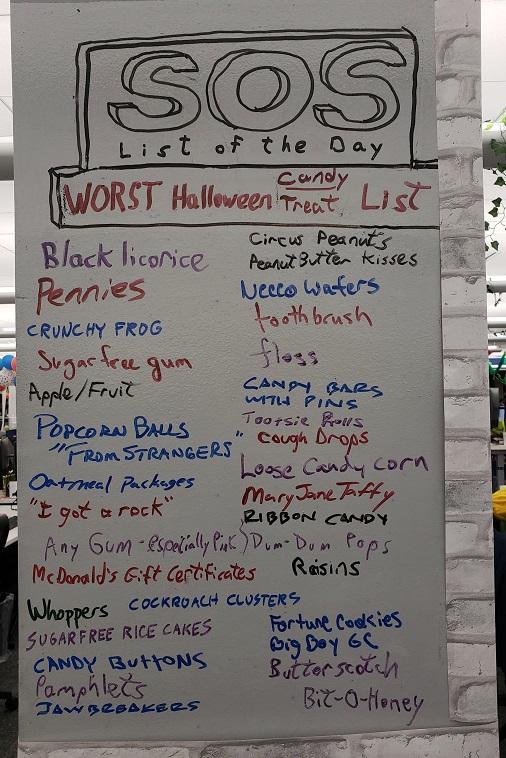 SOS
List of the Day
WORST Halloween Candy Treat List
Black licorice
Pennies
CRUNCHY FROG
Sugar free gum
Apple/Fruit
POPCORN BALLS
"FROM STRANGERS"
Oatmeal Packages
"I got a rock"
Any Gum - especially Pink)
McDonald's Gift Certificates
Whoppers
COCKROACH CLUSTERS
SUGAR FREE RICE CAKES
CANDY BUTTONS
Pamphlets
JAWBREAKERS
Circus Peanuts
Peanut Butter Kisses
Necco Wafers
toothbrush
floss
CANDY BARS
WITH PINS
Tootsie Rolls
Cough Drops
Loose Candy corn
Mary Jane Taffy
RIBBON CANDY
Dum-Dum Pops
Raisins
Fortune Cookies
Big Boy GC
Butterscotch
Bit-O-Honey